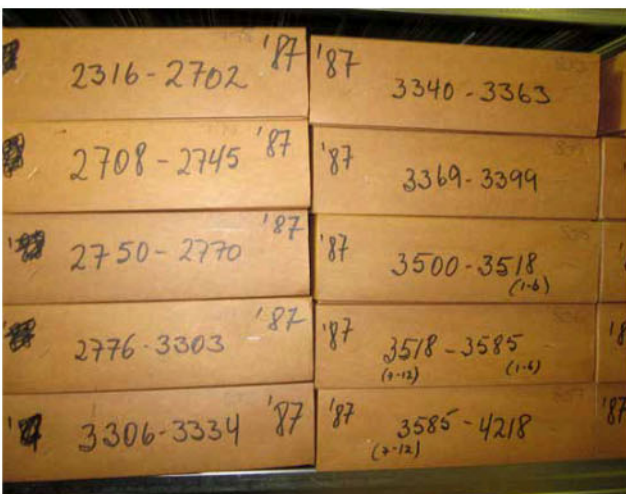 2316-2702 '87
2708-2745 '87
2750-2770 '87
2776-3303 '87
3306-3334 '87
'87 3340-3363
'87 3369-3399
'87 3500-3518
(1-6)
'87 3518-3585
(7-12) (1-6)
'87 3585-4218
(7-12)
'8
'87